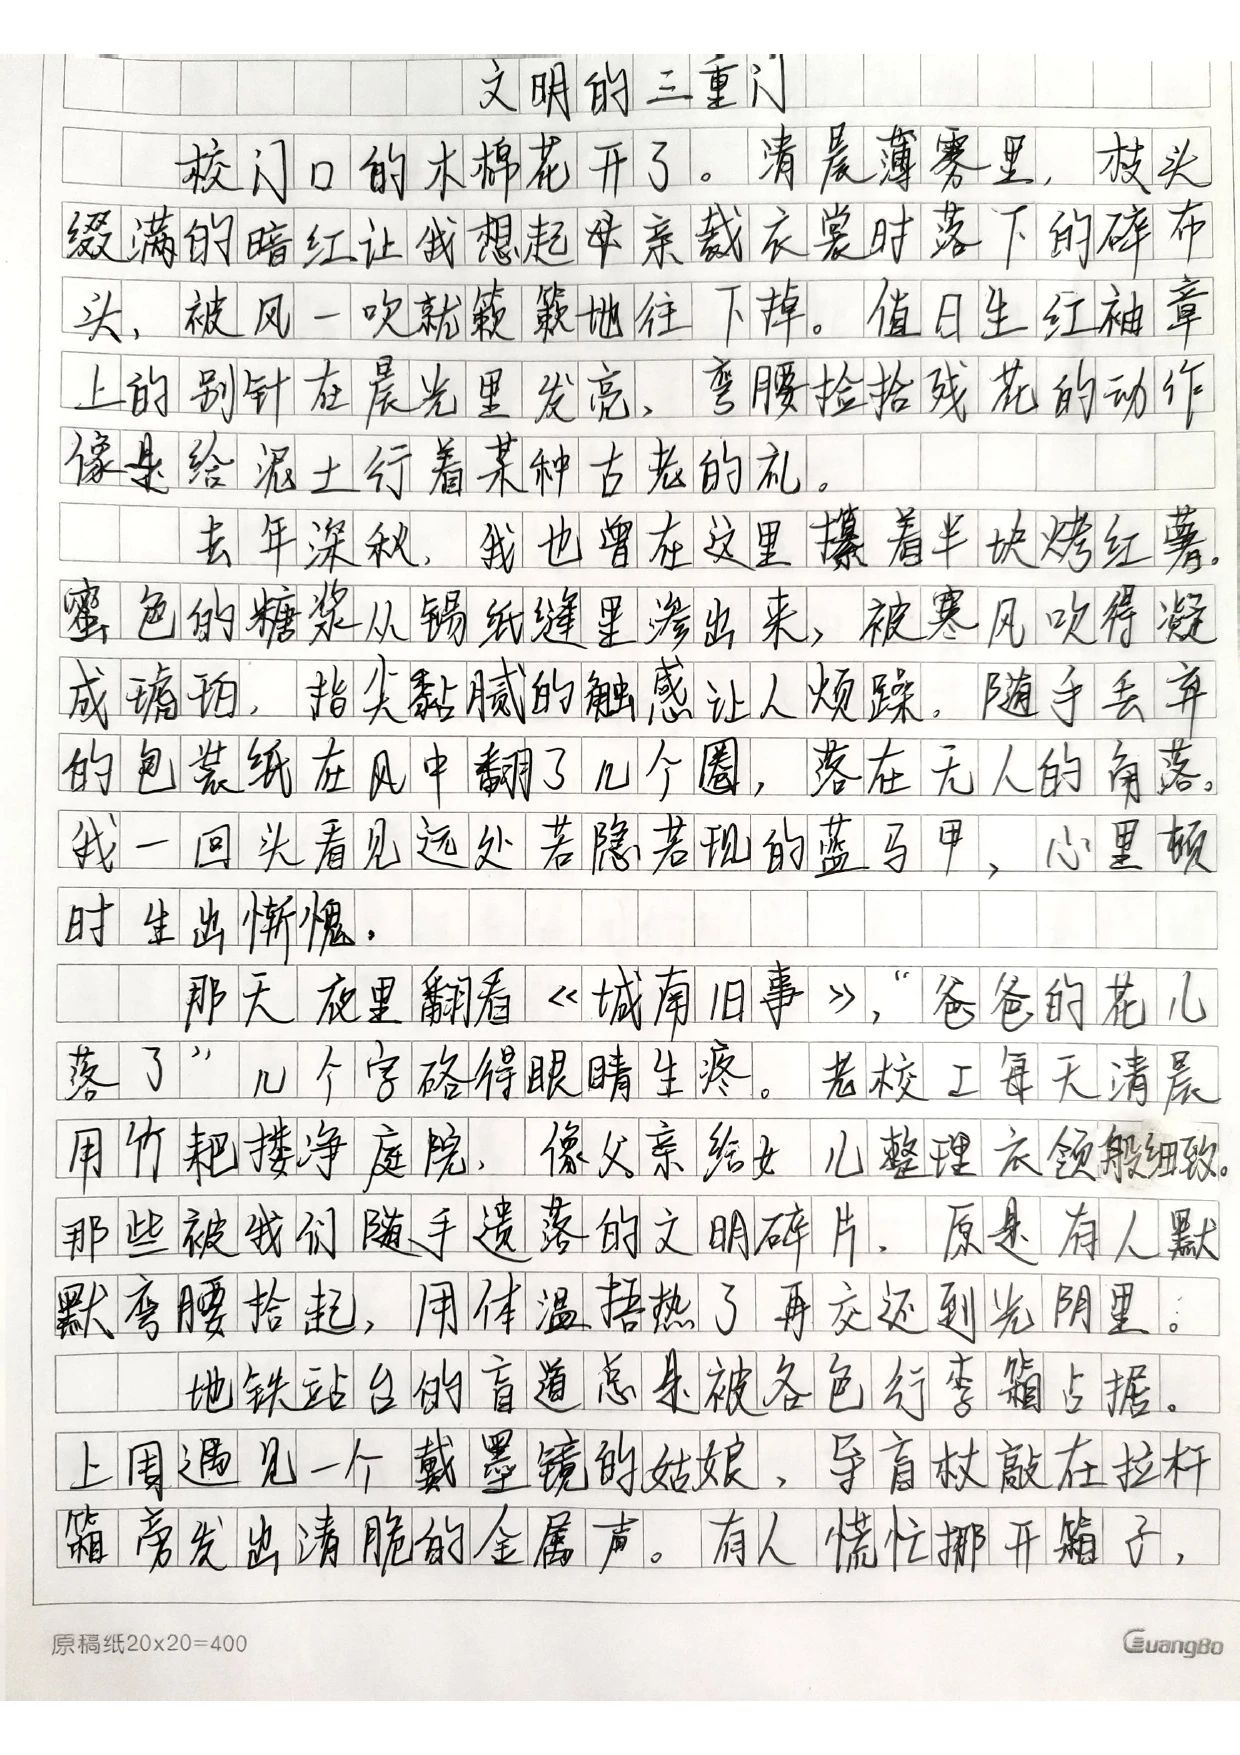 文明的三重门
校门口的木棉花开了。清晨薄雾里,枝头
缀满的暗红让我想起母亲裁衣裳时落下的碎布
头,被风一吹就簌簌地往下掉。值日生红袖章
上的别针在晨光里发亮,弯腰捡拾残花的动作
像是给泥土行着某种古老的礼。
去年深秋,我也曾在这里攥着半块烤红薯。
蜜色的糖浆从锡纸缝里渗出来,被寒风吹得凝
成琥珀,指尖黏腻的触感让人烦躁。随手丢弃
的包装纸在风中翻了几个圈,落在无人的角落。
我一回头看见远处若隐若现的蓝马甲,心里顿
时生出惭愧。
那天夜里翻看《城南旧事》,“爸爸的花儿
落了”几个字硌得眼睛生疼。老校工每天清晨
用竹耙搂净庭院,像父亲给女儿整理衣领般细致。
那些被我们随手遗落的文明碎片,原是有人默
默弯腰拾起,用体温捂热了再交还到光阴里。
地铁站台的盲道总是被各色行李箱占据。
上周遇见一个戴墨镜的姑娘,导盲杖敲在拉杆
箱旁发出清脆的金属声。有人慌忙挪开箱子,
原稿纸20x20=400
GuangBo